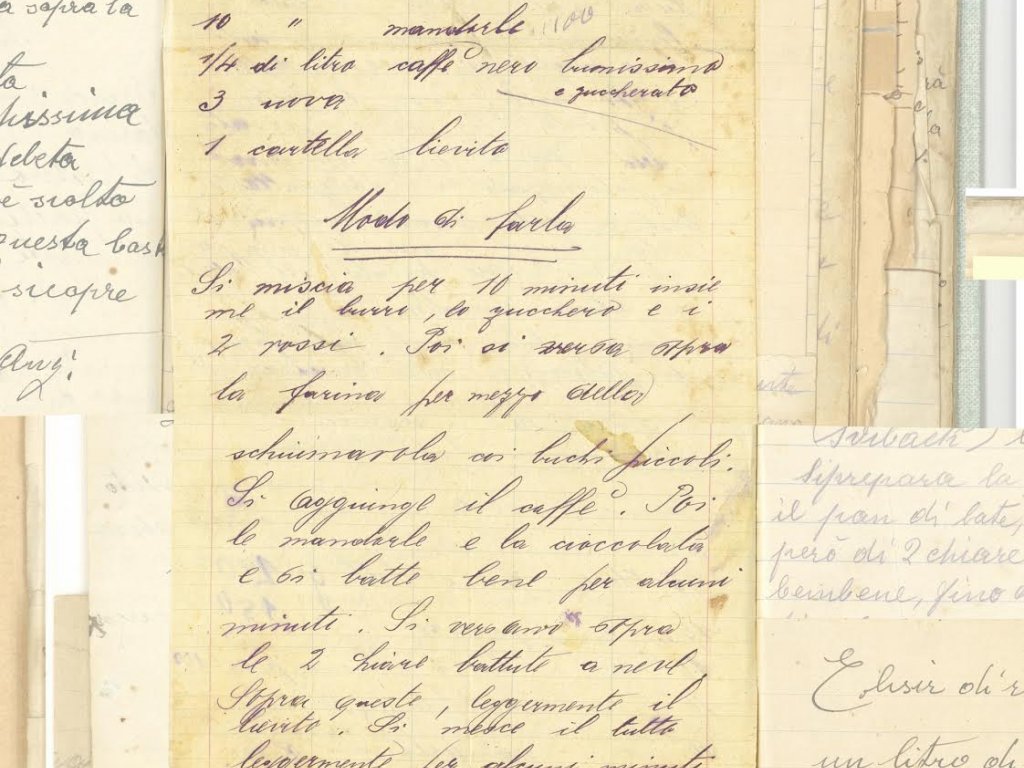 a sopra la
ta
hissima
debeta
è siolto
questa bast
sicopre
Aug:
10 " mandorle 100
1/4 di litro caffè nero bunissimo
e zuccherato
3 uova
1 cartella lievito
Modo di farla
Si miscia per 10 minuti insie
me il burro, lo zucchero e i
2 rossi. Poi si versa sopra
la farina per mezzo della
schiumarola coi buchi piccoli.
Si aggiunge il caffè. Poi
le mandorle e la cioccolata
e si batte bene per alcuni
minuti. Si versano sopra
le 2 chiare battute a neve,
Sopra queste, leggermente il
lievito. Si mesce il tutto
leggermente per alcuni minuti
Siprepara la
il pan di late,
però di 2 chiare
benbene, fino a
Elisir di
un litro di